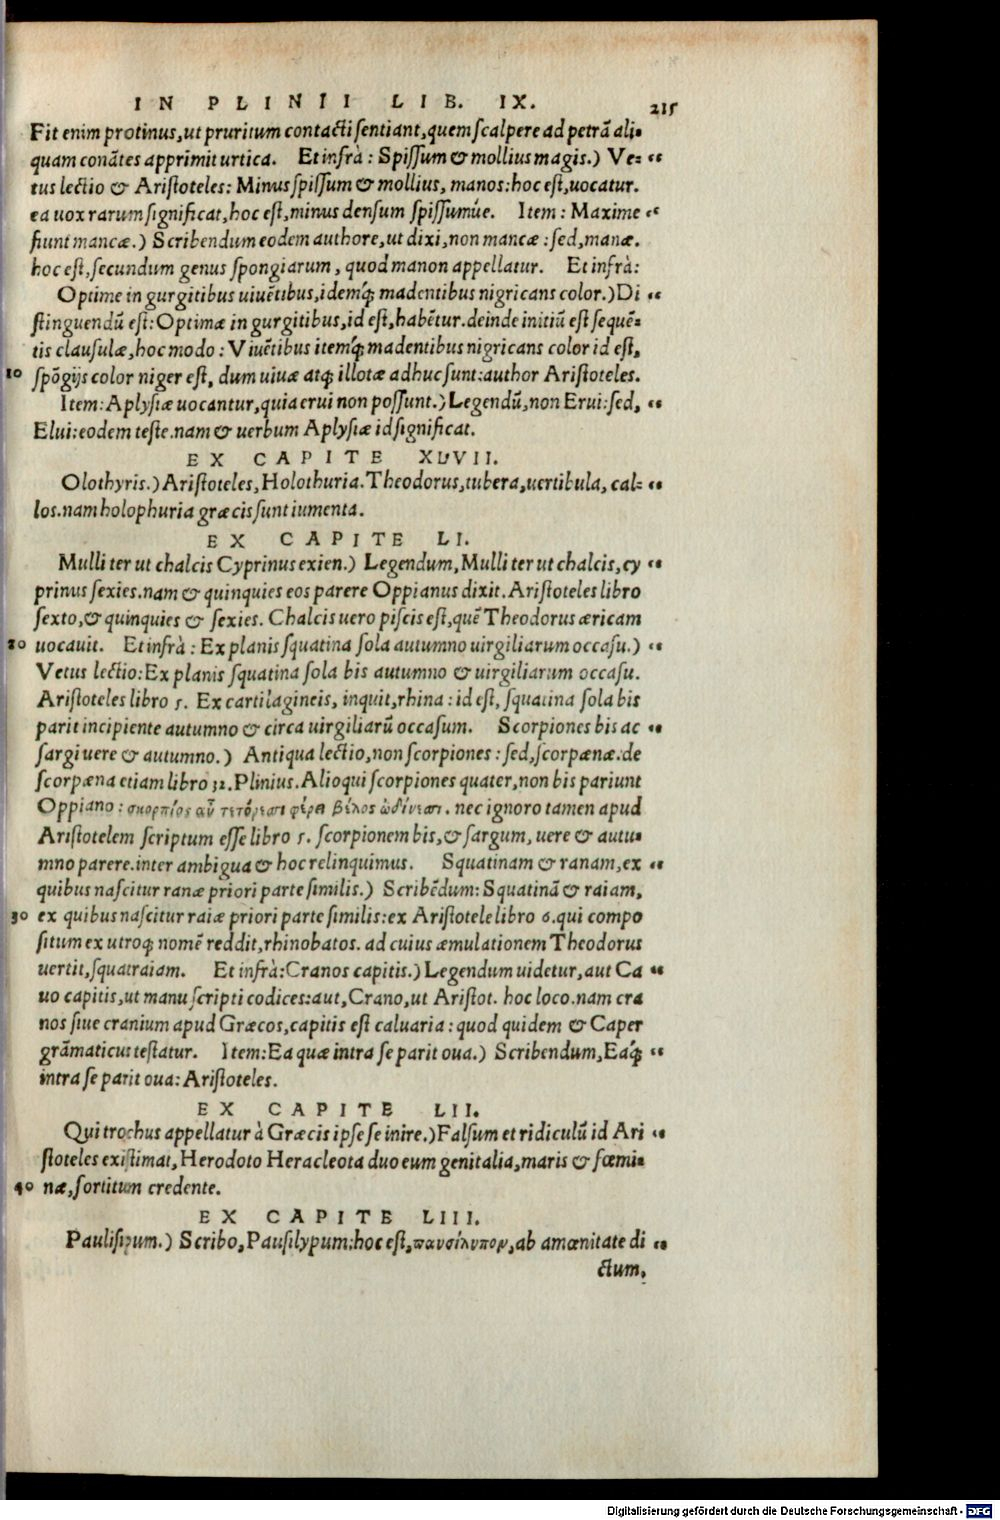 IN PLINII LIB. IX. 215
Fit enim protinus, ut pruritum contacti sentiant, quem scalpere ad petrã ali-
quam conãtes apprimit urtica. Et infrà: Spissum & mollius magis.) Ve- “
tus lectio & Aristoteles: Minus spissum & mollius, manos: hoc est, uocatur.
ea uox rarum significat, hoc est, minus densum spissumúe. Item: Maxime “
fiunt mancæ.) Scribendum eodem authore, ut dixi, non mancæ: sed, manæ.
hoc est, secundum genus spongiarum, quod manon appellatur. Et infrà:
Optime in gurgitibus uiuẽtibus, idemq́; madentibus nigricans color.) Di “
stinguendũ est: Optimæ in gurgitibus, id est, habẽtur. deinde initiũ est sequẽ-
tis clausulæ, hoc modo: Viuẽtibus itemq́; madentibus nigricans color id est,
10 spõgijs color niger est, dum uiuæ atq; illotæ adhuc sunt: author Aristoteles.
Item: Aplysiæ uocantur, quia erui non possunt.) Legendũ, non Erui: sed, “
Elui: eodem teste. nam & uerbum Aplysiæ id significat.
EX CAPITE XLVII.
Olothyris.) Aristoteles, Holothuria. Theodorus, tubera, uertibula, cal- “
los. nam holophuria græcis sunt iumenta.
EX CAPITE LI.
Mulli ter ut chalcis Cyprinus exien.) Legendum, Mulli ter ut chalcis, cy “
prinus sexies. nam & quinquies eos parere Oppianus dixit. Aristoteles libro
sexto, & quinquies & sexies. Chalcis uero piscis est, quẽ Theodorus æricam
20 uocauit. Et infrà: Ex planis squatina sola autumno uirgiliarum occasu.) “
Vetus lectio: Ex planis squatina sola bis autumno & uirgiliarum occasu.
Aristoteles libro 5. Ex cartilagineis, inquit, rhina: id est, squatina sola bis
parit incipiente autumno & circa uirgiliarũ occasum. Scorpiones bis ac “
sargi uere & autumno.) Antiqua lectio, non scorpiones: sed, scorpænæ. de
scorpæna etiam libro 32. Plinius. Alioqui scorpiones quater, non bis pariunt
Oppiano: σκορπίος αὖ τετόρεσσι φέρει βέλος ὠδίνεσσι. nec ignoro tamen apud
Aristotelem scriptum esse libro 5. scorpionem bis, & sargum, uere & autu-
mno parere. inter ambigua & hoc relinquimus. Squatinam & ranam, ex “
quibus nascitur ranæ priori parte similis.) Scribẽdum: Squatinã & raiam,
30 ex quibus nascitur raiæ priori parte similis: ex Aristotele libro 6. qui compo
situm ex utroq; nomẽ reddit, rhinobatos. ad cuius æmulationem Theodorus
uertit, squatraiam. Et infrà: Cranos capitis.) Legendum uidetur, aut Ca “
uo capitis, ut manu scripti codices: aut, Crano, ut Aristot. hoc loco. nam cra
nos siue cranium apud Græcos, capitis est caluaria: quod quidem & Caper
grãmaticus testatur. Item: Ea quæ intra se parit oua.) Scribendum, Eaq́; “
intra se parit oua: Aristoteles.
EX CAPITE LII.
Qui trochus appellatur à Græcis ipse se inire.) Falsum et ridiculũ id Ari “
stoteles existimat, Herodoto Heracleota duo eum genitalia, maris & fœmi-
40 næ, sortitum credente.
EX CAPITE LIII.
Paulisipum.) Scribo, Pausilypum: hoc est, παυσίλυπον, ab amœnitate di “
ctum,
Digitalisierung gefördert durch die Deutsche Forschungsgemeinschaft - DFG